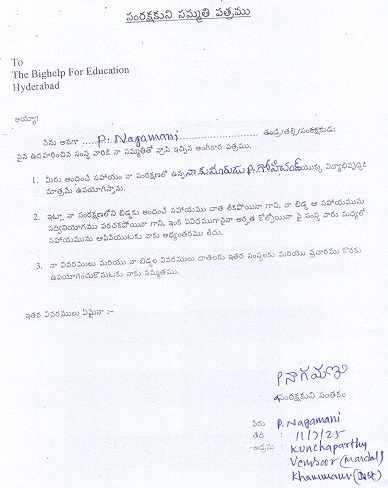 సంరక్షకుని సమ్మతి పత్రము
To
The Bighelp For Education
Hyderabad
అయ్యా!
నేను అనగా ......P. Nagamani...... తండ్రి/తల్లి/సంరక్షకుడు
పైన ఉదహరించిన సంస్థ వారికి నా సమ్మతితో వ్రాసి ఇచ్చిన అంగీకార పత్రము.
1. మీరు అందించే సహాయం నా సంరక్షణలో ఉన్న నా కుమారుడు P. గోపిచంద్ యొక్క విద్యాభివృద్ధికి
మాత్రమే ఉపయోగిస్తాను.
2. ఇట్లా నా సంరక్షణలోని బిడ్డకు అందించే సహాయము దాత లేకపోయినా గాని, నా బిడ్డ ఆ సహాయమును
సద్వినియోగము పరచకపోయినా గాని, ఇంక ఏవిధముగానైనా అర్హత కోల్పోయినా పై సంస్థ వారు మధ్యలో
సహాయమును ఆపివేయుటకు నాకు అభ్యంతరము లేదు.
3. నా వివరములు మరియు నా బిడ్డల వివరములు దాతలకు ఇతర సంస్థలకు మరియు ప్రచారము కొరకు
ఉపయోగించుకొనుటకు నాకు సమ్మతము.
ఇతర వివరములు ఏమైనా :-
P నాగమణి
సంరక్షకుని సంతకం
పేరు P. Nagamani
తేది : 11/7/25
అడ్రసు : Kunchaparthy
Vemsoor (Mandal)
Khammam (Dist)